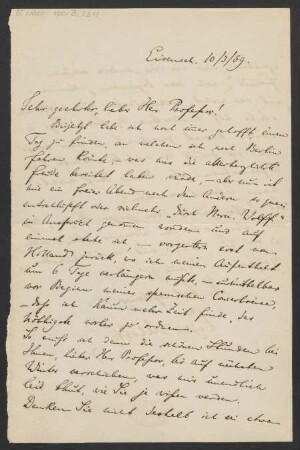 Eisenach. 10/3/89.
Sehr geehrter, lieber Herr Professor!
Bis jetzt habe ich noch immer gehofft einen
Tag zu finden, an welchem ich nach Berlin
fahren könnte, was mir die allergrößte
Freude bereitet haben würde, – aber nun ist
mir ein freier Abend nach dem Andern so quasi
entschlüpft oder vielmehr, durch Herrn Wolff
in Anspruch genommen worden und auf
einmal stehe ich, – vorgestern erst von
Holland zurück, wo ich meinen Aufenthalt
um 6 Tage verlängern mußte, – unmittelbar
vor Beginn meiner spanischen Concertreise,
– daß ich kaum mehr Zeit finde, das
Nöthigste vorher zu ordnen.
So muß ich denn die schönen Stunden bei
Ihnen, lieber Herr Professor, bis auf nächsten
Winter verschieben, was mir unendlich
leid thut, wie Sie ja wissen werden.
Denken Sie nicht deshalb ich sei etwa